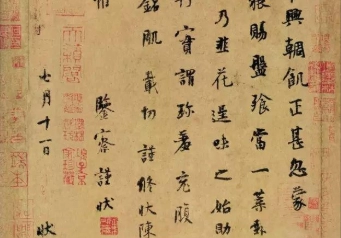 興輖飢正甚忽蒙
猥賜盤飧當一葉報
乃韭花逞味之始助
羜實謂珍羞充腹
銘肌載切謹修狀陳
鑒察謹狀
七月十一日
狀